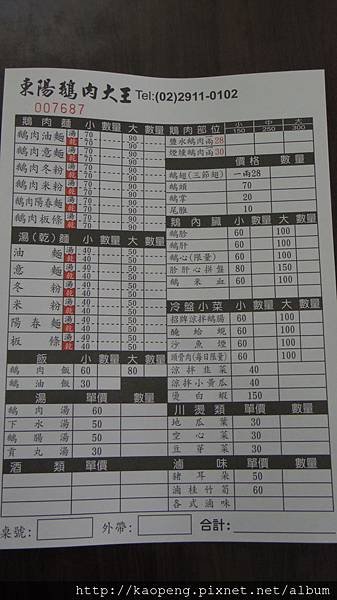 東陽鵝肉大王 Tel:(02)2911-0102
007687
鵝肉麵 小 數量 大 數量
鵝肉油麵 湯 乾 70 70 90 90
鵝肉意麵 湯 乾 70 70 90 90
鵝肉冬粉 湯 乾 70 70 90 90
鵝肉米粉 湯 乾 70 70 90 90
鵝肉陽春麵 湯 乾 70 70 90 90
鵝肉板條 湯 乾 70 70 90 90
湯(乾)麵 小 數量 大 數量
油麵 湯 乾 40 40 50 50
意麵 湯 乾 40 40 50 50
冬粉 湯 乾 40 40 50 50
米粉 湯 乾 40 40 50 50
陽春麵 湯 乾 40 40 50 50
板條 湯 乾 40 40 50 50
飯 小 數量 大 數量
鵝肉飯 60 80
鵝油飯 30
湯 單價 數量
鵝肉湯 60
下水湯 50
鵝腸湯 50
貢丸湯 30
酒類 單價 數量
鵝肉部位 小 150 中 250 大 300
鹽水鵝肉兩28
煙燻鵝肉兩30
價格 數量
鵝翅(三節翅) 一兩28
鵝頭 70
鵝掌 20
尾椎 10
鵝內臟 小 數量 大 數量
鵝胗 60 100
鵝肝 60 100
鵝心(限量) 60 100
胗肝心拼盤 80 150
鵝米血 60
冷盤小菜 小 數量 大 數量
招牌涼拌鵝腸 60 100
醃蛤蜆 60 100
沙魚煙 60 100
頭骨肉(每日限量) 60 100
涼拌韭菜 40
涼拌小黃瓜 40
燙白蝦 150
川燙類 單價 數量
地瓜葉 30
空心菜 30
豆芽菜 30
滷味 單價 數量
豬耳朵 50
滷桂竹筍 60
各式滷味
桌號: 外帶: 合計:
http://kaopeng.pixnet.net/album